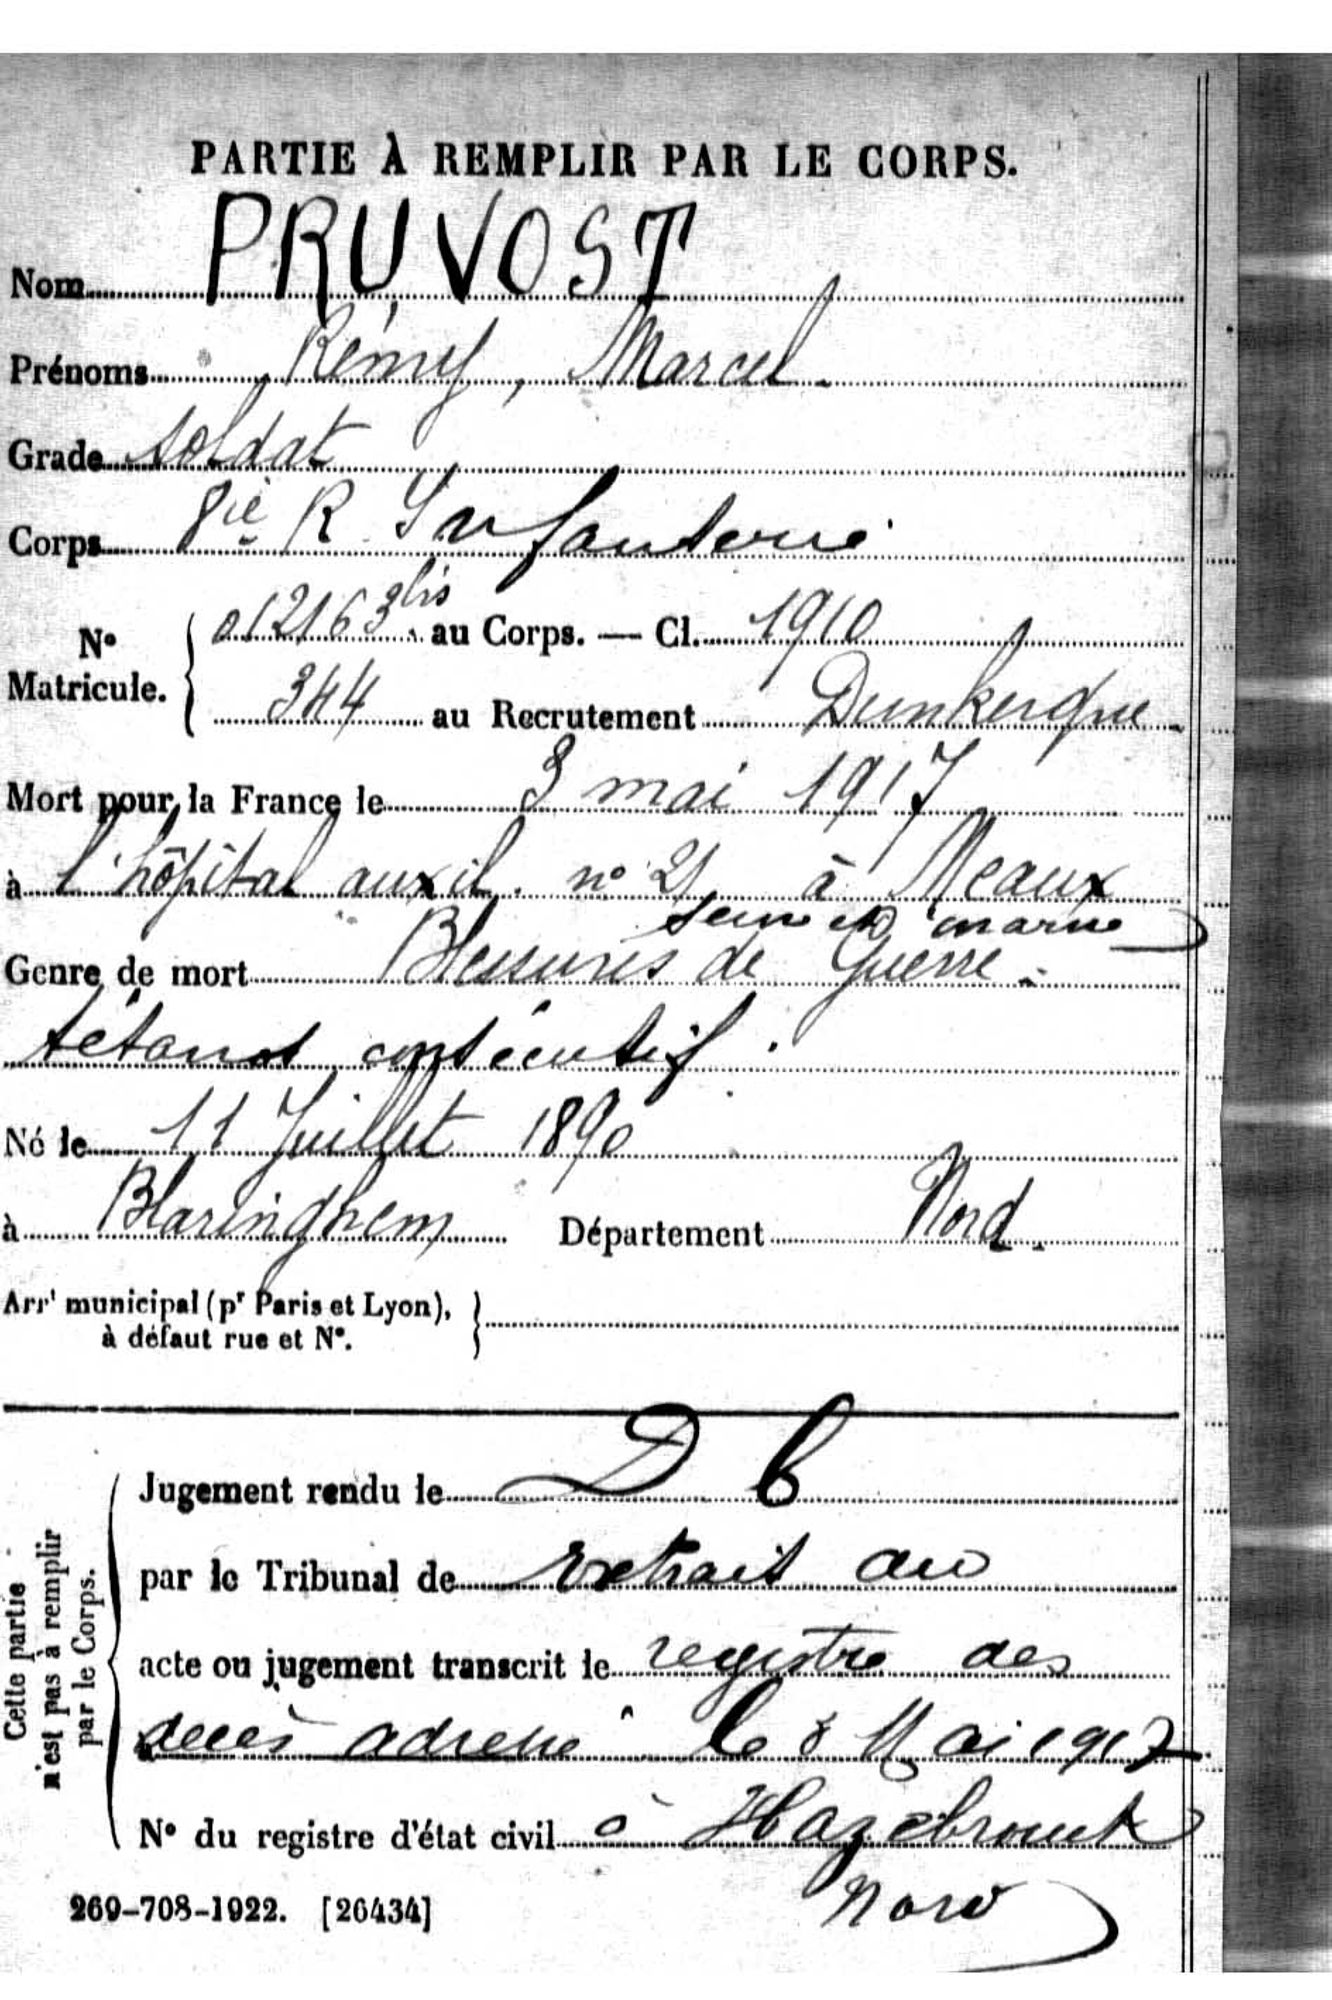 PARTIE À REMPLIR PAR LE CORPS.
Nom PRUVOST
Prénoms Rémy, Marcel
Grade soldat
Corps 8ie R Infanterie
No Matricule. 012163 bis au Corps. — Cl. 1910
344 au Recrutement Dunkerque
Mort pour la France le 3 mai 1917
à l'hôpital auxil. no 21 à Meaux
Seine et marne
Genre de mort Blessures de Guerre
tétanos consécutif.
Né le 11 Juillet 1890
à Blaringhem Département Nord
Arrt municipal (pr Paris et Lyon),
à défaut rue et No.
Cette partie
n'est pas à remplir
par le Corps.
Jugement rendu le D C
par le Tribunal de extrait du
acte ou jugement transcrit le registre des
décès adressé le 8 Mai 1917
No du registre d'état civil à Hazebrouck
Nord
269-708-1922. [26434]